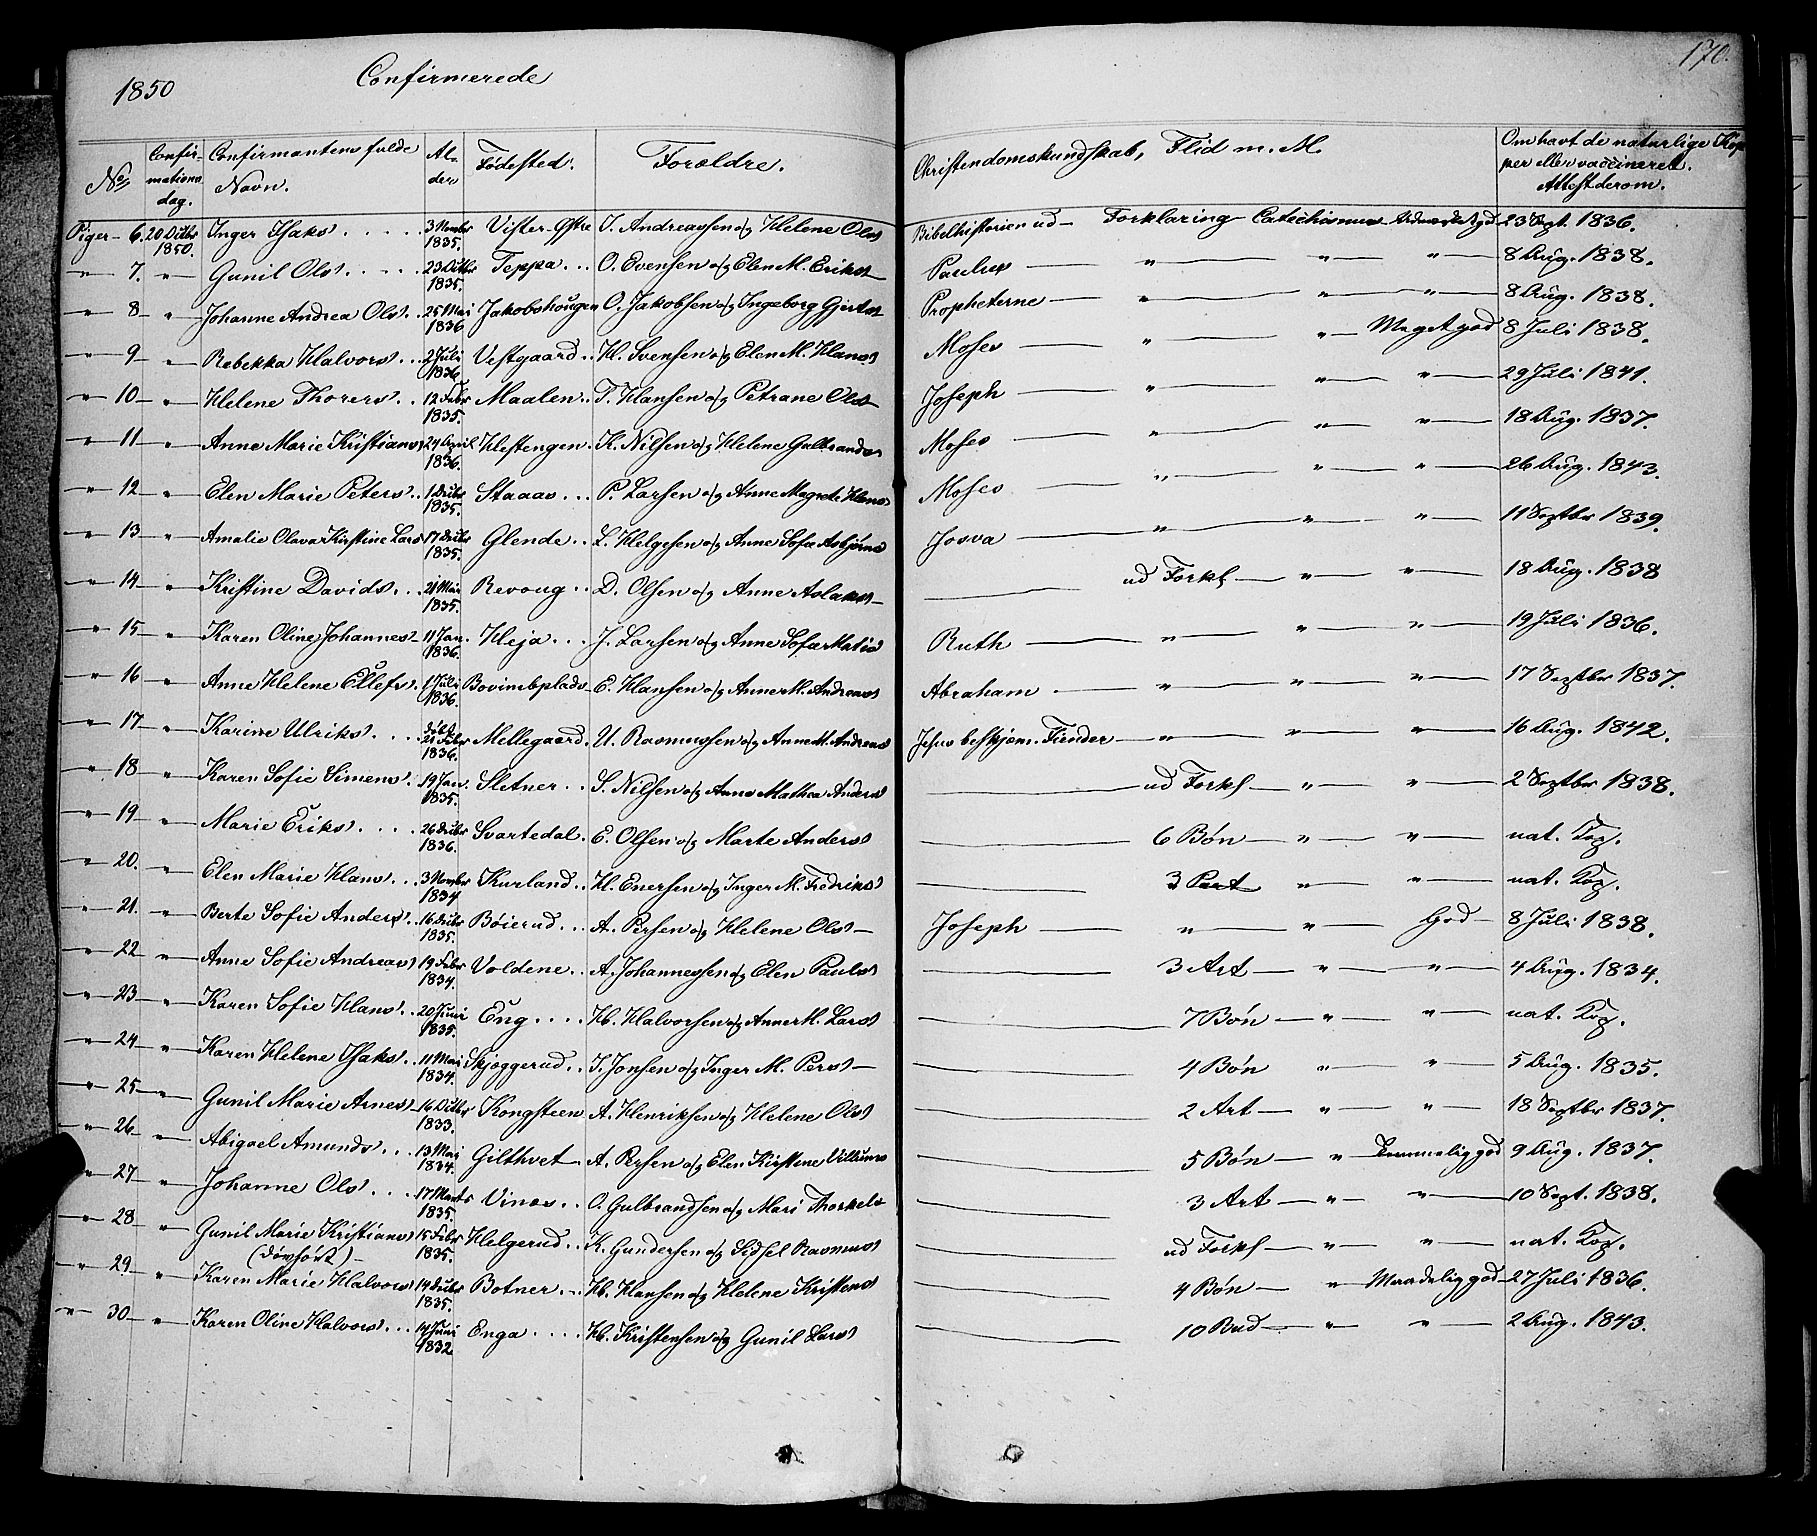 1850
Confirmerede
170.
No Confirmationsdag. Confirmantens fulde Navn. Alder Fødested. Forældre. Christendomskundskab, Flid m. M. Om havt de naturlige Kopper eller vaccineret. Attest derom.
Piger 6. 20 Octbr 1850. Inger Isaks 3 Novbr 1835. Vister-Østre I. Andreassen og Helene Ols Bibelhistorien ud Forklaring Catechismus god 23 Sept. 1836.
" 7. " Gunil Ols 23 Octbr 1835. Teppa O. Evensen og Elen M. Eriks Paulus " " " 8 Aug. 1838.
" 8 " Johanne Andrea Ols 25 Mai 1836 Jakobshougen O. Jakobsen og Ingeborg Gjerts Propheterne " " " 8 Aug. 1838.
" 9 " Rebekka Halvors 2 Juli 1836 Vestgaard H. Svensen og Elen M. Hans Moses " " Meget god 8 Juli 1838.
" 10 " Helene Thorers 12 Febr 1835. Maalen T. Hansen og Petrane Ols Joseph " " " 29 Juli 1841.
" 11 " Anne Marie Kristians 24 April 1836. Hestengen K. Nilsen og Helene Gulbrands Moses " " " 18 Aug. 1837.
" 12 " Elen Marie Peters 1 Octbr 1835. Staaas P. Larsen og Anne Magrete Hans Moses " " " 26 Aug. 1843.
" 13 " Amalie Olava Kirstine Lars 17 Octbr 1835. Glende L. Helgesen og Anne Sofie Asbjørns Josva " " " 11 Septbr 1839.
" 14 " Kristine Davids 21 Mai 1835. Revoug D. Olsen og Anne Aslaks ud Forkl " " 18 Aug. 1838
" 15 " Karen Oline Johannes 11 Jan. 1836. Heja J. Larsen og Anne Sofie Matis Ruth " " " 19 Juli 1836.
" 16 " Anne Helene Ellefs 1 Juli 1836. Bovimbplads E. Hansen og Anne M. Andreas Abraham " " " 17 Septbr 1837.
" 17 " Karine Ulriks døbt 21 Febr 1836. Mellegaard U. Rasmussen og Anne M. Andreas Jesus beskjæm. Fiender " " " 16 Aug. 1842.
" 18 " Karen Sofie Simens 19 Jan. 1835. Sletner S. Nilsen og Anne Mathea Anders ud Forkl " " 2 Septbr 1838.
" 19 " Marie Eriks 26 Octbr 1836. Svartedal E. Olsen og Marte Anders 6 Bøn " " nat. Kop.
" 20. " Elen Marie Hans 3 Novbr 1834 Kurland H. Enersen og Inger M. Fredriks 3 Part " " nat. Kop.
" 21. " Berte Sofie Anders 16 Octbr 1835. Bøierud A. Persen og Helene Ols Joseph " " God 8 Juli 1838.
" 22 " Anne Sofie Andreas 19 Febr 1834. Voldene A. Johannessen og Elen Pauls 3 Art " " 4 Aug. 1834.
" 23 " Karen Sofie Hans 20 Juni 1835. Eng H. Halvorsen og Anne M. Lars 7 Bøn " " nat. Kop.
" 24 " Karen Helene Isaks 11 Mai 1834. Skjøggerud I. Jonsen og Inger M. Pers 4 Bøn " " 5 Aug. 1835.
" 25 " Gunil Marie Arnes 16 Octbr 1833. Kongsteen A. Henriksen og Helene Ols 2 Art " " 18 Septbr 1837.
" 26 " Abigael Amunds 13 Mai 1834. Gilthvet A. Persen og Elen Kirstine Villums 5 Bøn " Temmelig god 9 Aug. 1837.
" 27 " Johanne Ols 17 Marts 1835. Vines O. Gulbrandsen og Mari Thorkels 3 Art " " 10 Sept. 1838.
" 28 " Gunil Marie Kristians (døvhørt) 15 Febr 1835. Helgerud K. Gundersen og Sidsel Rasmus ud Forkl " " nat. Kop.
" 29 " Karen Marie Halvors 14 Octbr 1835. Botner H. Hansen og Helene Kristens 4 Bøn " Maadelig god 27 Juli 1836.
" 30 " Karen Oline Halvors 14 Juni 1832 Enga H. Kristensen og Gunil Lars 10 Bud " " 2 Aug. 1843.